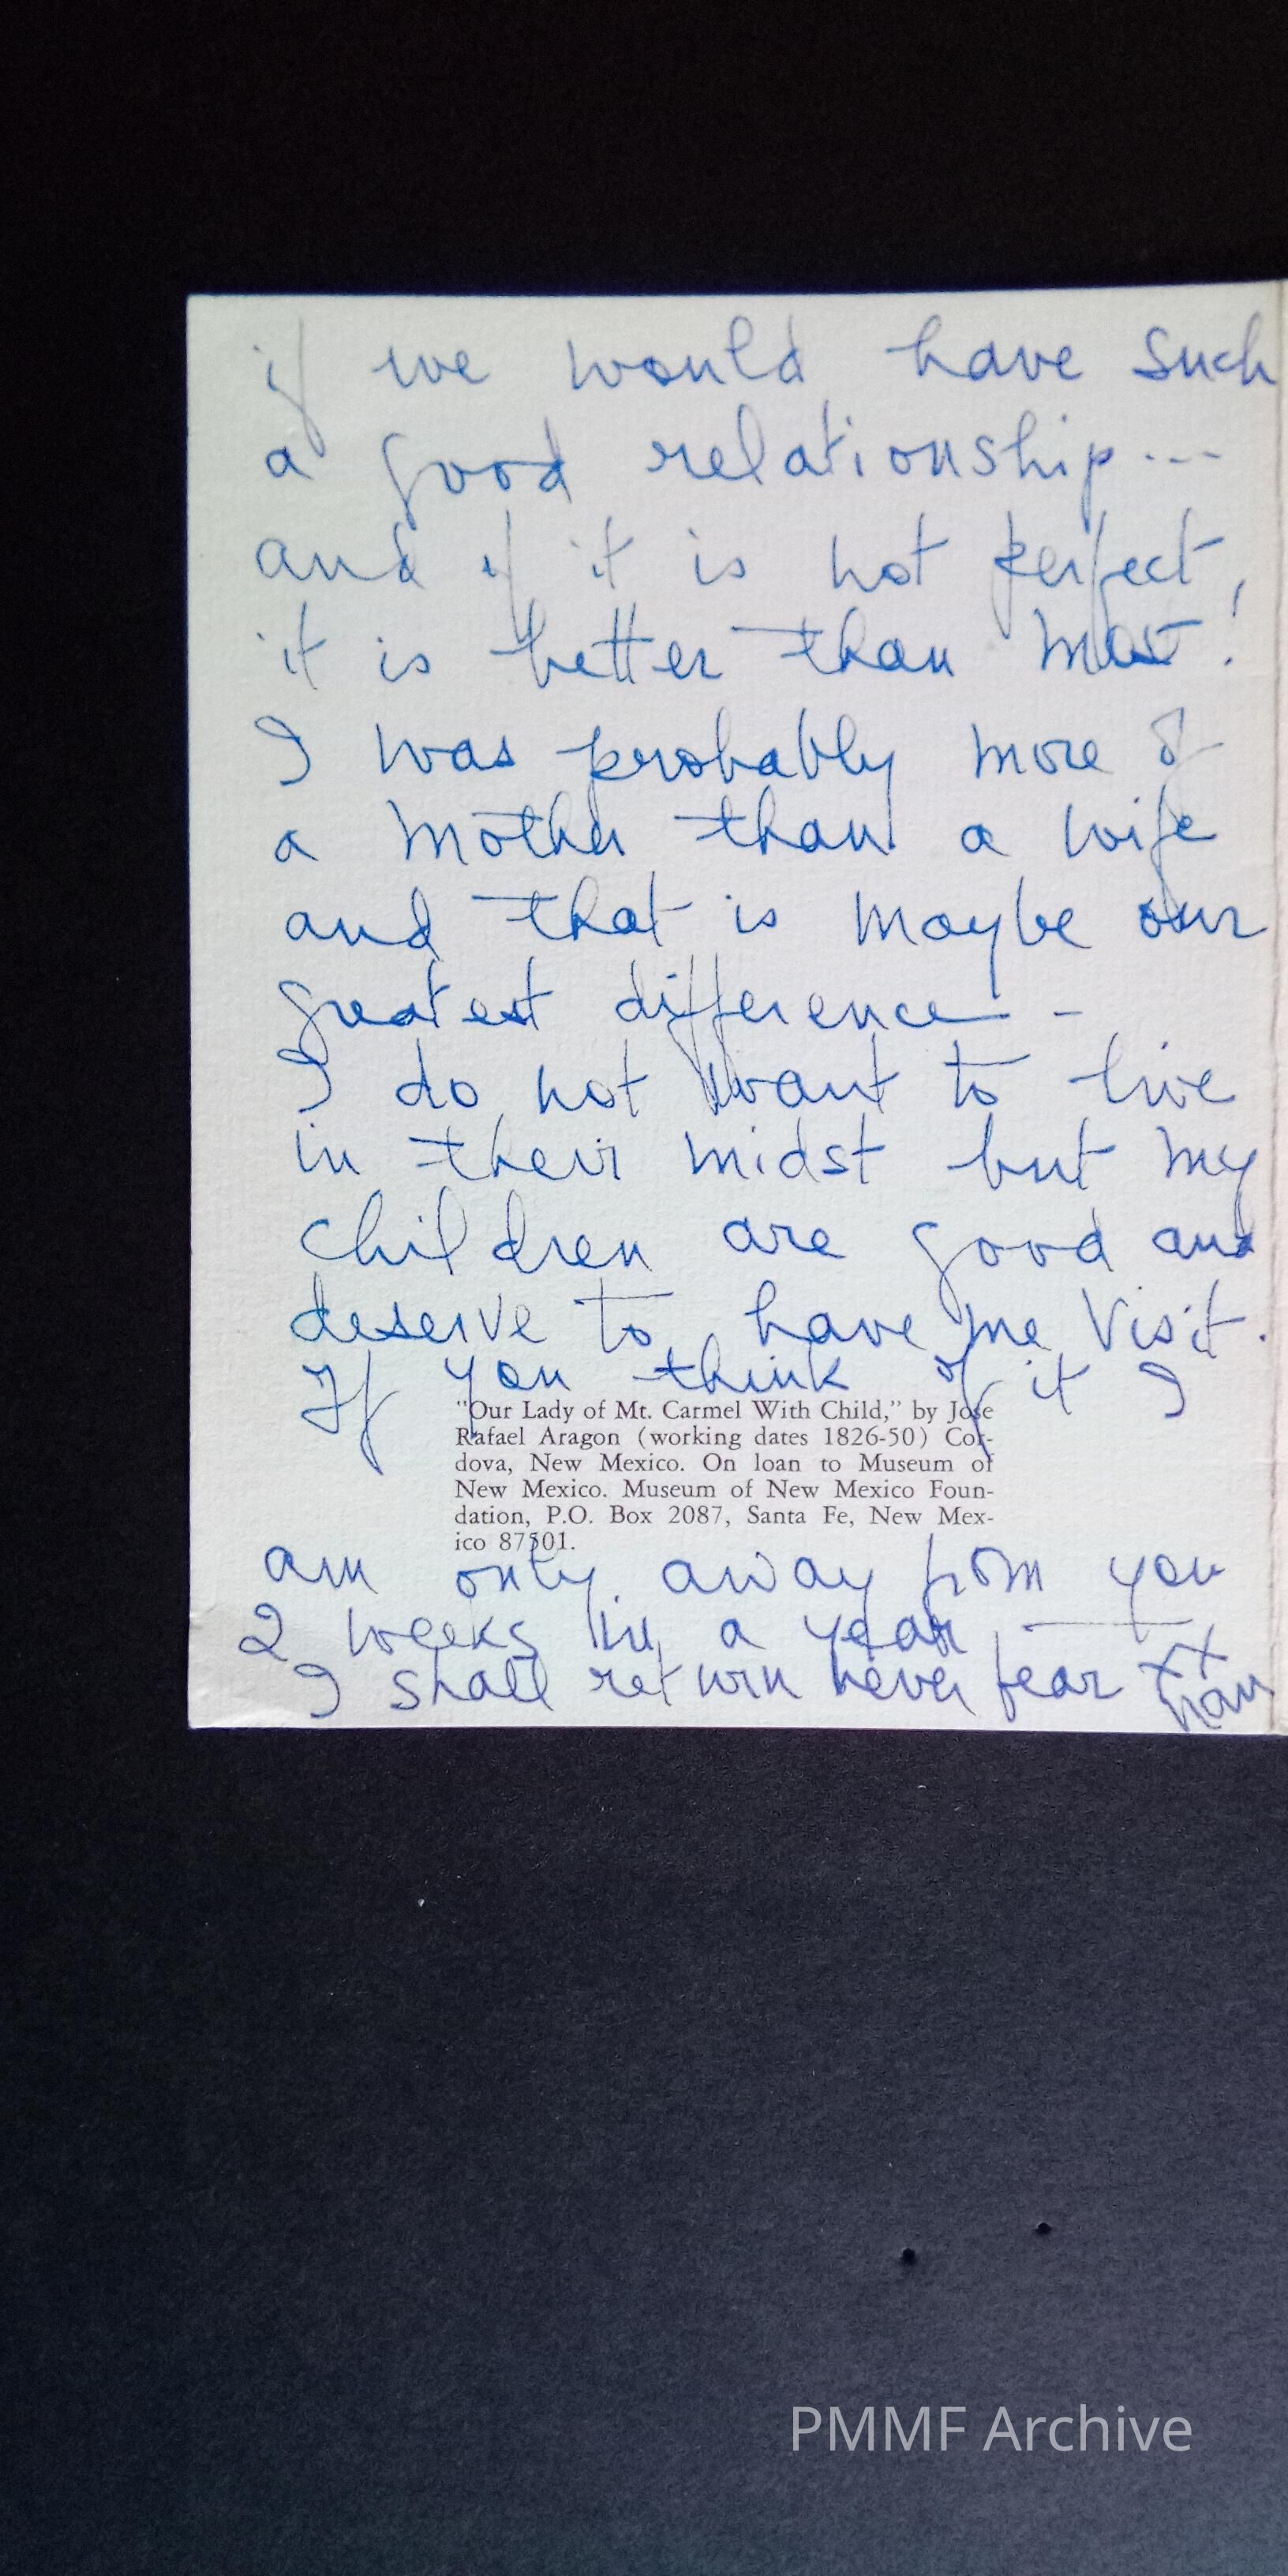 if we would have such
a good relationship ---
and if it is not perfect,
it is better than most!
I was probably more of
a mother than a wife
and that is maybe our
greatest difference -
I do not want to live
in their midst but my
children are good and
deserve to have me visit.
If you think of it I
"Our Lady of Mt. Carmel With Child," by Jose
Rafael Aragon (working dates 1826-50) Cor-
dova, New Mexico. On loan to Museum of
New Mexico. Museum of New Mexico Foun-
dation, P.O. Box 2087, Santa Fe, New Mex-
ico 87501.
am only away from you
2 weeks in a year —
I shall return never fear xx
PMMF Archive